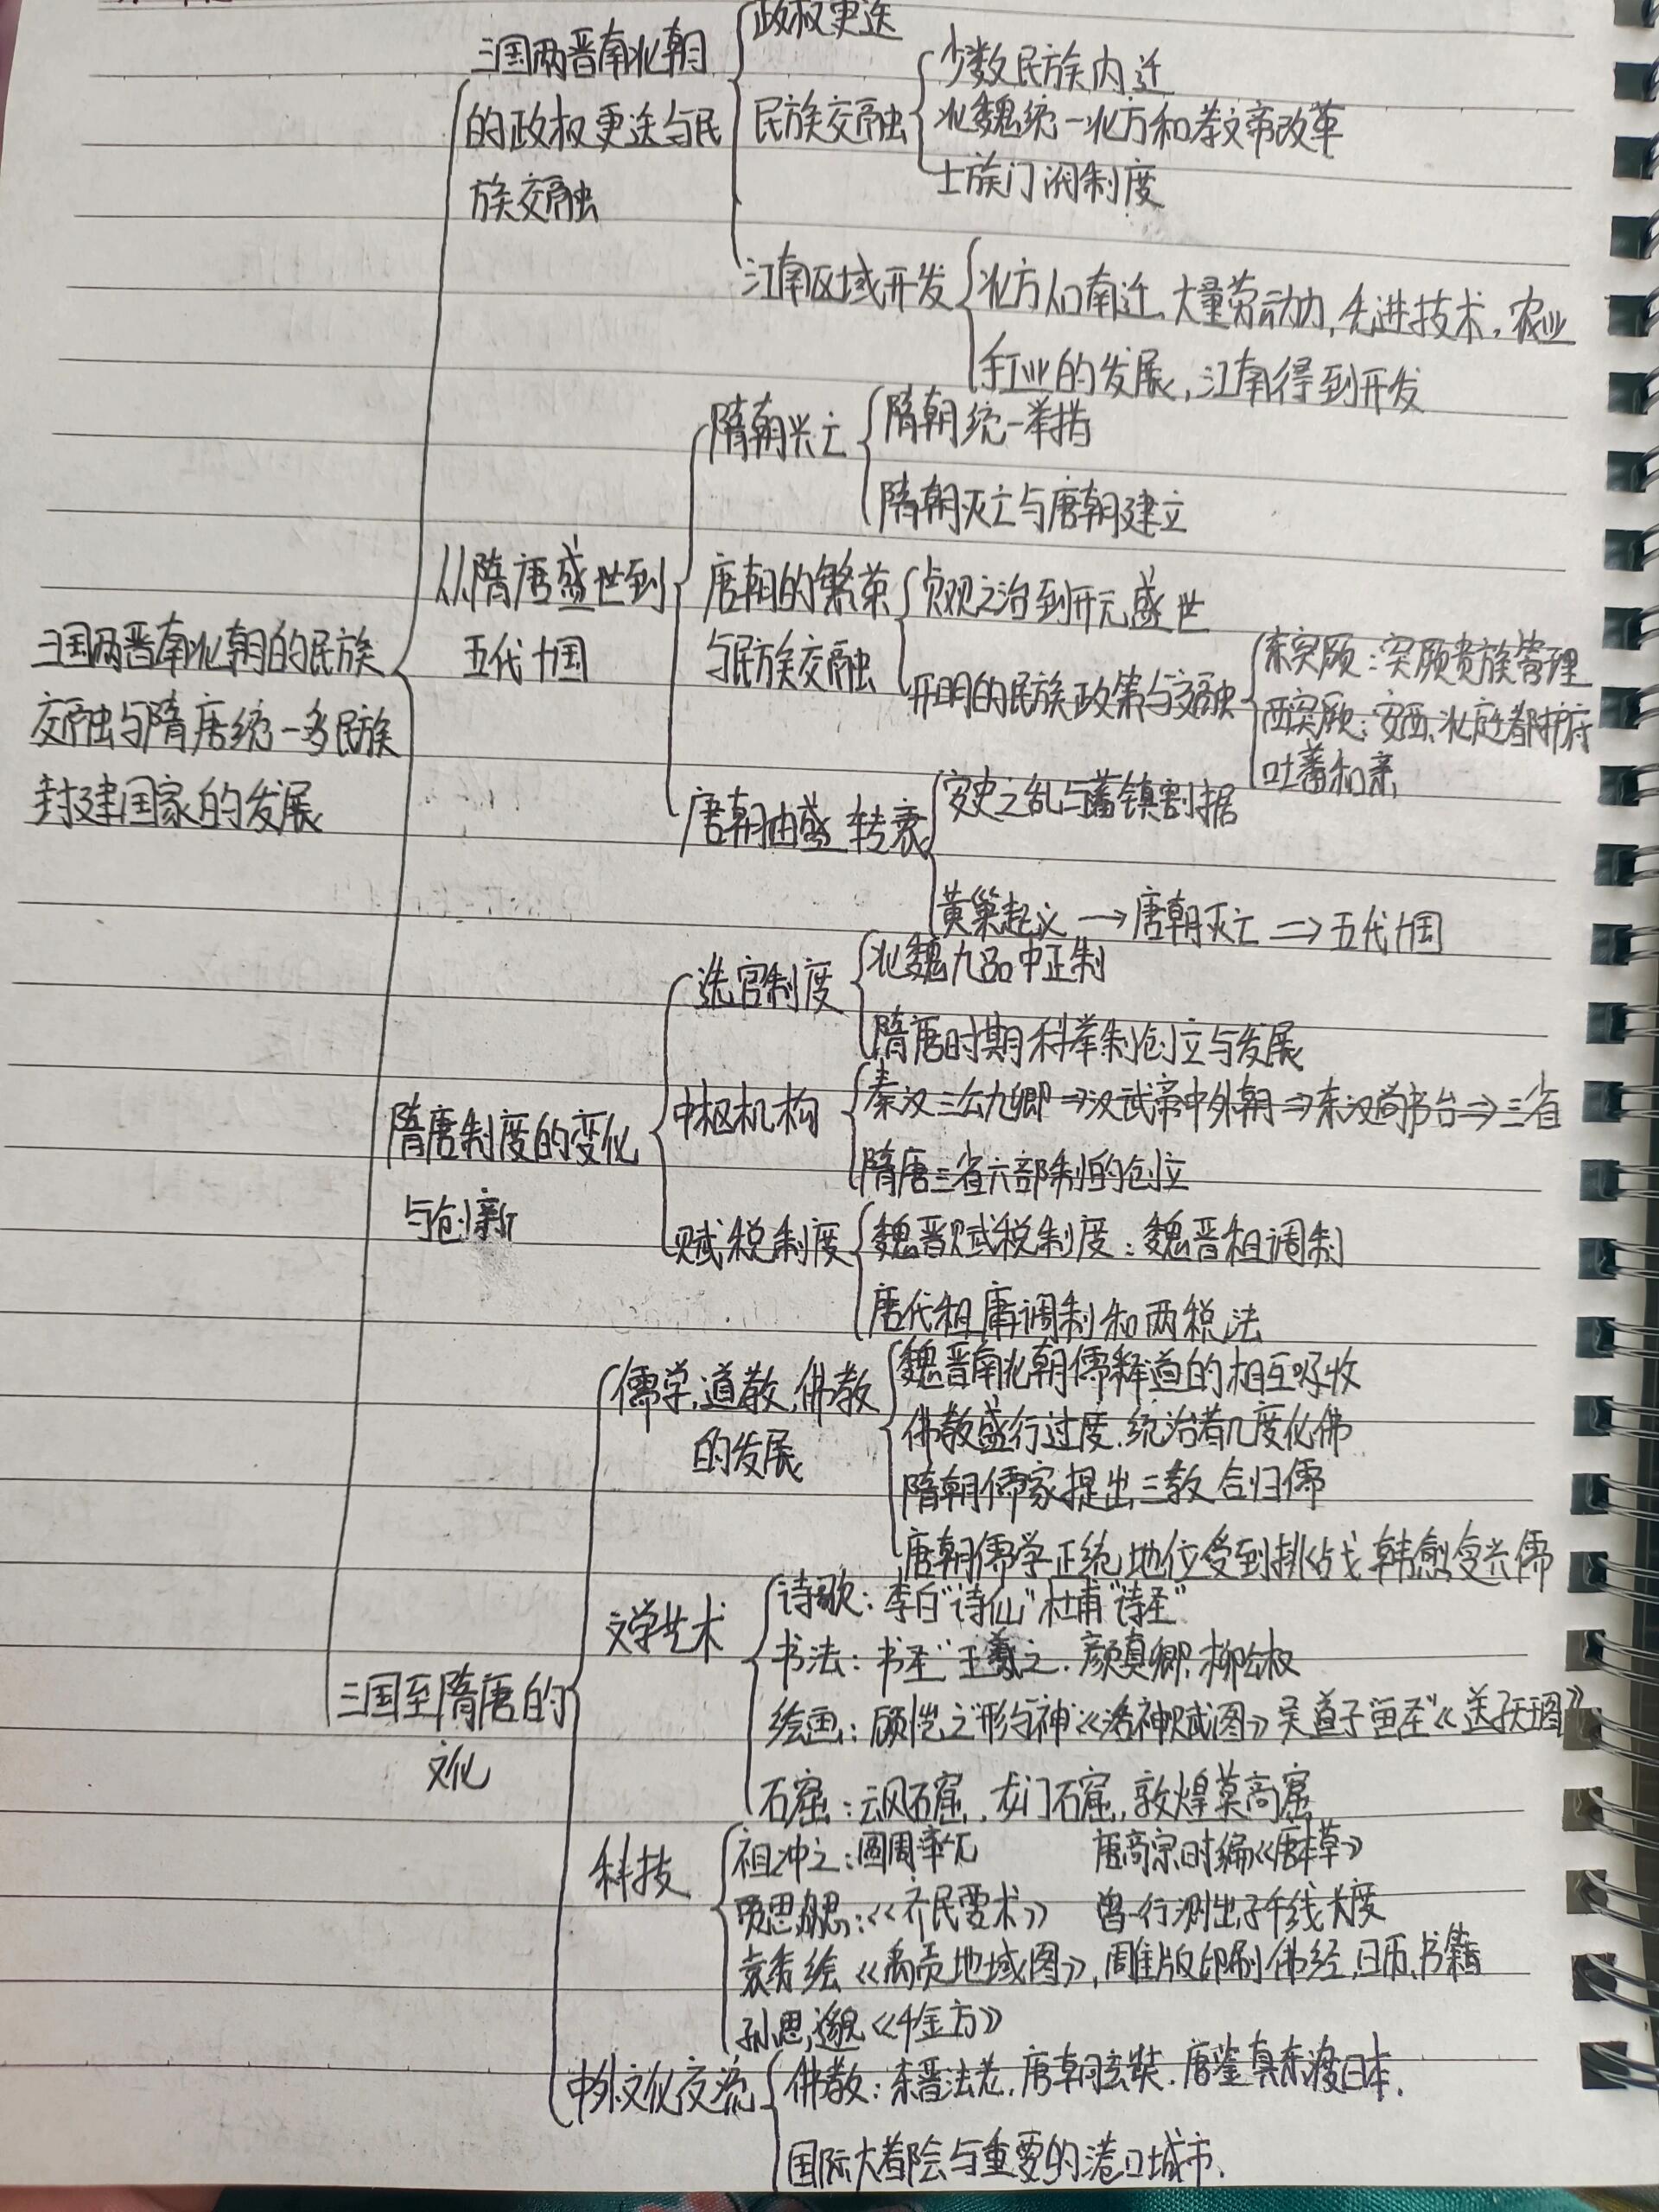 三国两晋南北朝的民族
交融与隋唐统一多民族
封建国家的发展
三国两晋南北朝
的政权更迭与民
族交融
政权更迭
民族交融
少数民族内迁
北魏统一北方和孝文帝改革
士族门阀制度
江南区域开发
北方人口南迁、大量劳动力,先进技术,农业
手工业的发展,江南得到开发
从隋唐盛世到
五代十国
隋朝兴亡
隋朝统一举措
隋朝灭亡与唐朝建立
唐朝的繁荣
与民族交融
贞观之治到开元盛世
开明的民族政策与交融
东突厥:突厥贵族管理
西突厥:安西、北庭都护府
吐蕃和亲
唐朝由盛转衰
安史之乱与藩镇割据
黄巢起义→唐朝灭亡⇒五代十国
隋唐制度的变化
与创新
选官制度
北魏九品中正制
隋唐时期科举制创立与发展
中枢机构
秦汉三公九卿⇒汉武帝中外朝⇒东汉尚书台⇒三省
隋唐三省六部制的创立
赋税制度
魏晋赋税制度:魏晋租调制
唐代租庸调制和两税法
三国至隋唐的
文化
儒学,道教,佛教
的发展
魏晋南北朝儒释道的相互吸收
佛教盛行过度.统治者几度化佛
隋朝儒家提出三教合归儒
唐朝儒学正统地位受到挑战 韩愈复兴儒
文学艺术
诗歌:李白"诗仙"杜甫"诗圣"
书法:书圣"王羲之.颜真卿,柳公权
绘画:顾恺之"形与神"《洛神赋图》吴道子"画圣"《送子天王图》
石窟:云冈石窟,龙门石窟,敦煌莫高窟
科技
祖冲之:圆周率π 唐高宗时编《唐本草》
贾思勰:《齐民要术》 僧一行测出子午线长度
裴秀绘《禹贡地域图》,雕版印刷佛经,日历,书籍
孙思邈《千金方》
中外文化交流
佛教:东晋法显,唐朝玄奘.唐鉴真东渡日本.
国际大都会与重要的港口城市.